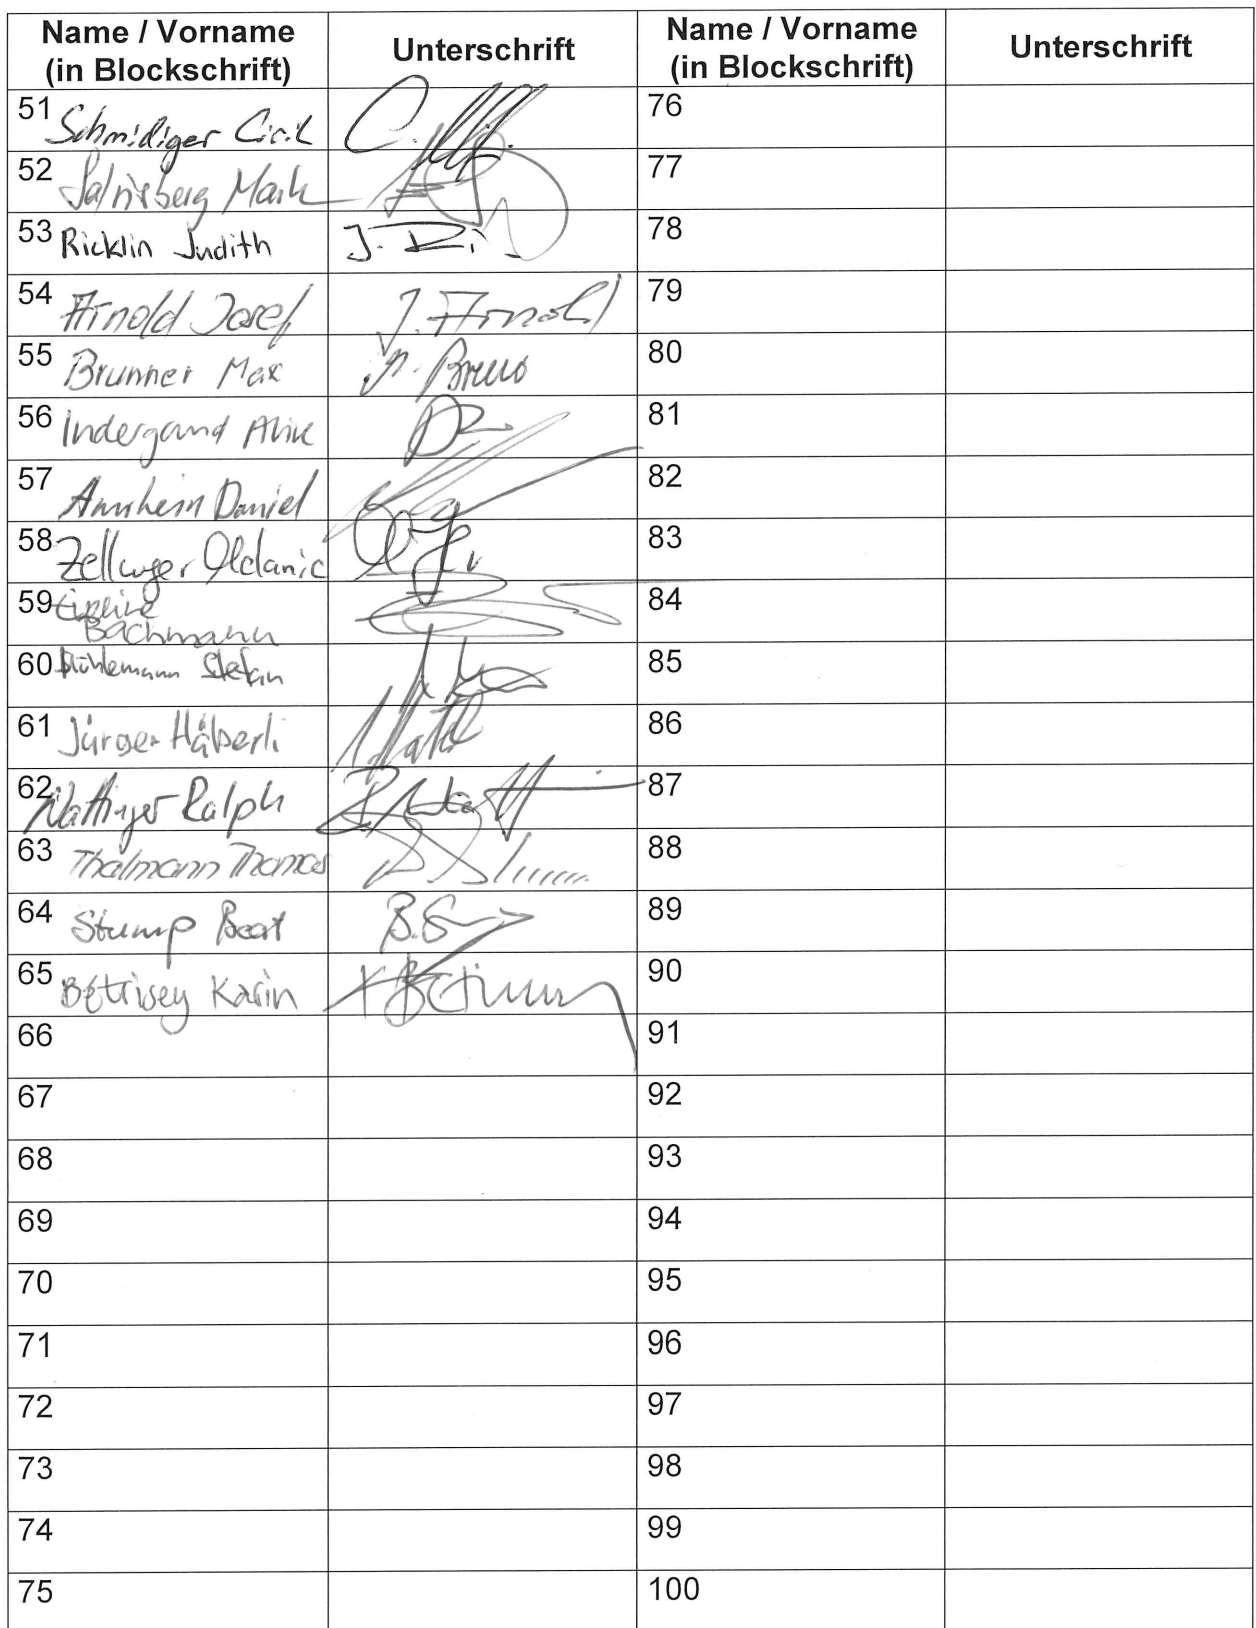 Name / Vorname
(in Blockschrift)
Unterschrift
Name / Vorname
(in Blockschrift)
Unterschrift
51 Schmidiger Ciril
76
52 Mark
77
53 Ricklin Judith J. Ri
78
54 Arnold Josef J. Arnold
79
55 Brunner Max
80
56 Indergand
81
57 Daniel
82
58
83
59
Bachmann
84
60 Stefan
85
61 Jürger Häberli
86
62 Ralph
87
63 Thalmann Thomas
88
64 Stump Beat B.S
89
65 Bétrisey Karin
90
66
91
67
92
68
93
69
94
70
95
71
96
72
97
73
98
74
99
75
100